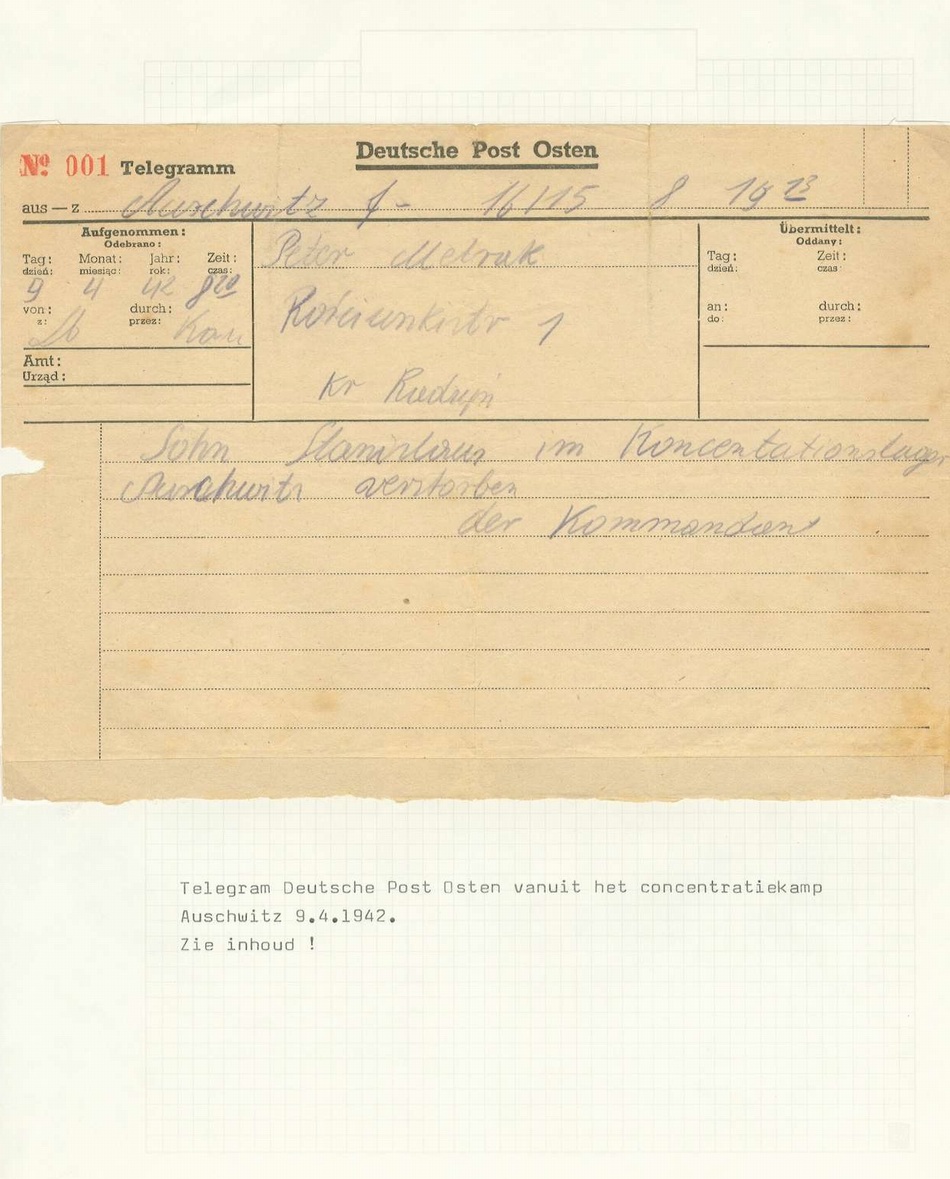 Deutsche Post Osten
Nº 001 Telegramm
aus — z Auschwitz 16/15 8 19 23
Aufgenommen:
Odebrano:
Tag: Monat: Jahr: Zeit:
dzień: miesiąc: rok: czas:
9 4 42 8 20
von: durch:
z: przez:
Amt:
Urząd:
Peter Metrak
1
Kr
Übermittelt:
Oddany:
Tag: Zeit:
dzień: czas:
an: durch:
do: przez:
Sohn Stanislaus im Koncentationslager
Auschwitz verstorben
der Kommandant
Telegram Deutsche Post Osten vanuit het concentratiekamp
Auschwitz 9.4.1942.
Zie inhoud !